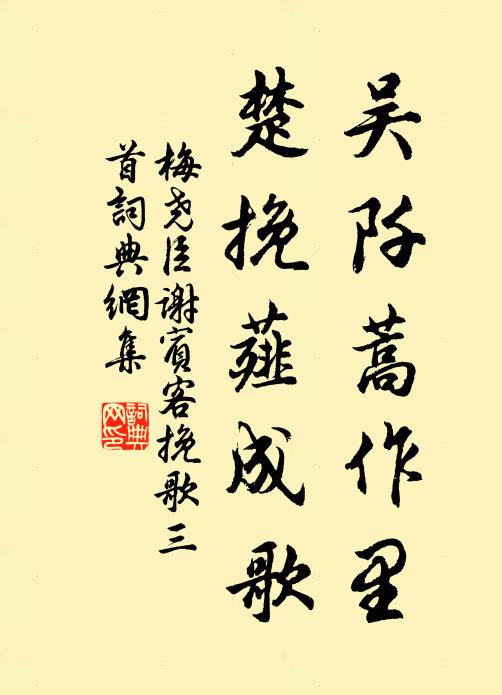 吴阡蒿作里
楚挽薤成歌
梅尧臣謝賓客挽歌三
首詞典網集
詞典网印